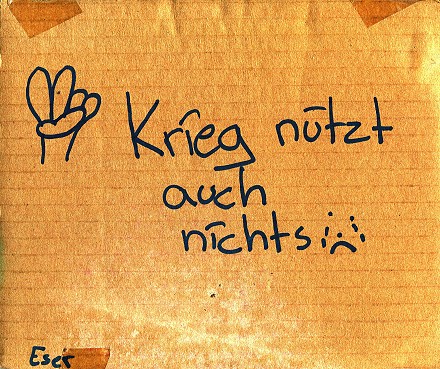 Krieg nützt
auch
nichts
Eser